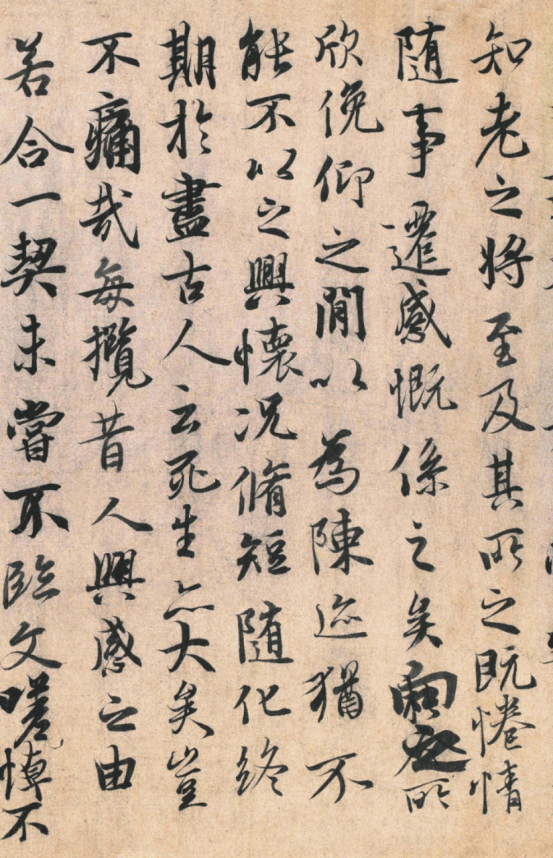 知老之将至及其所之既惓情
随事遷感慨係之矣向之所
欣俛仰之閒以為陳迹猶不
能不以之興懷况脩短随化終
期於盡古人云死生亦大矣豈
不痛哉每攬昔人興感之由
若合一契未嘗不臨文嗟悼不